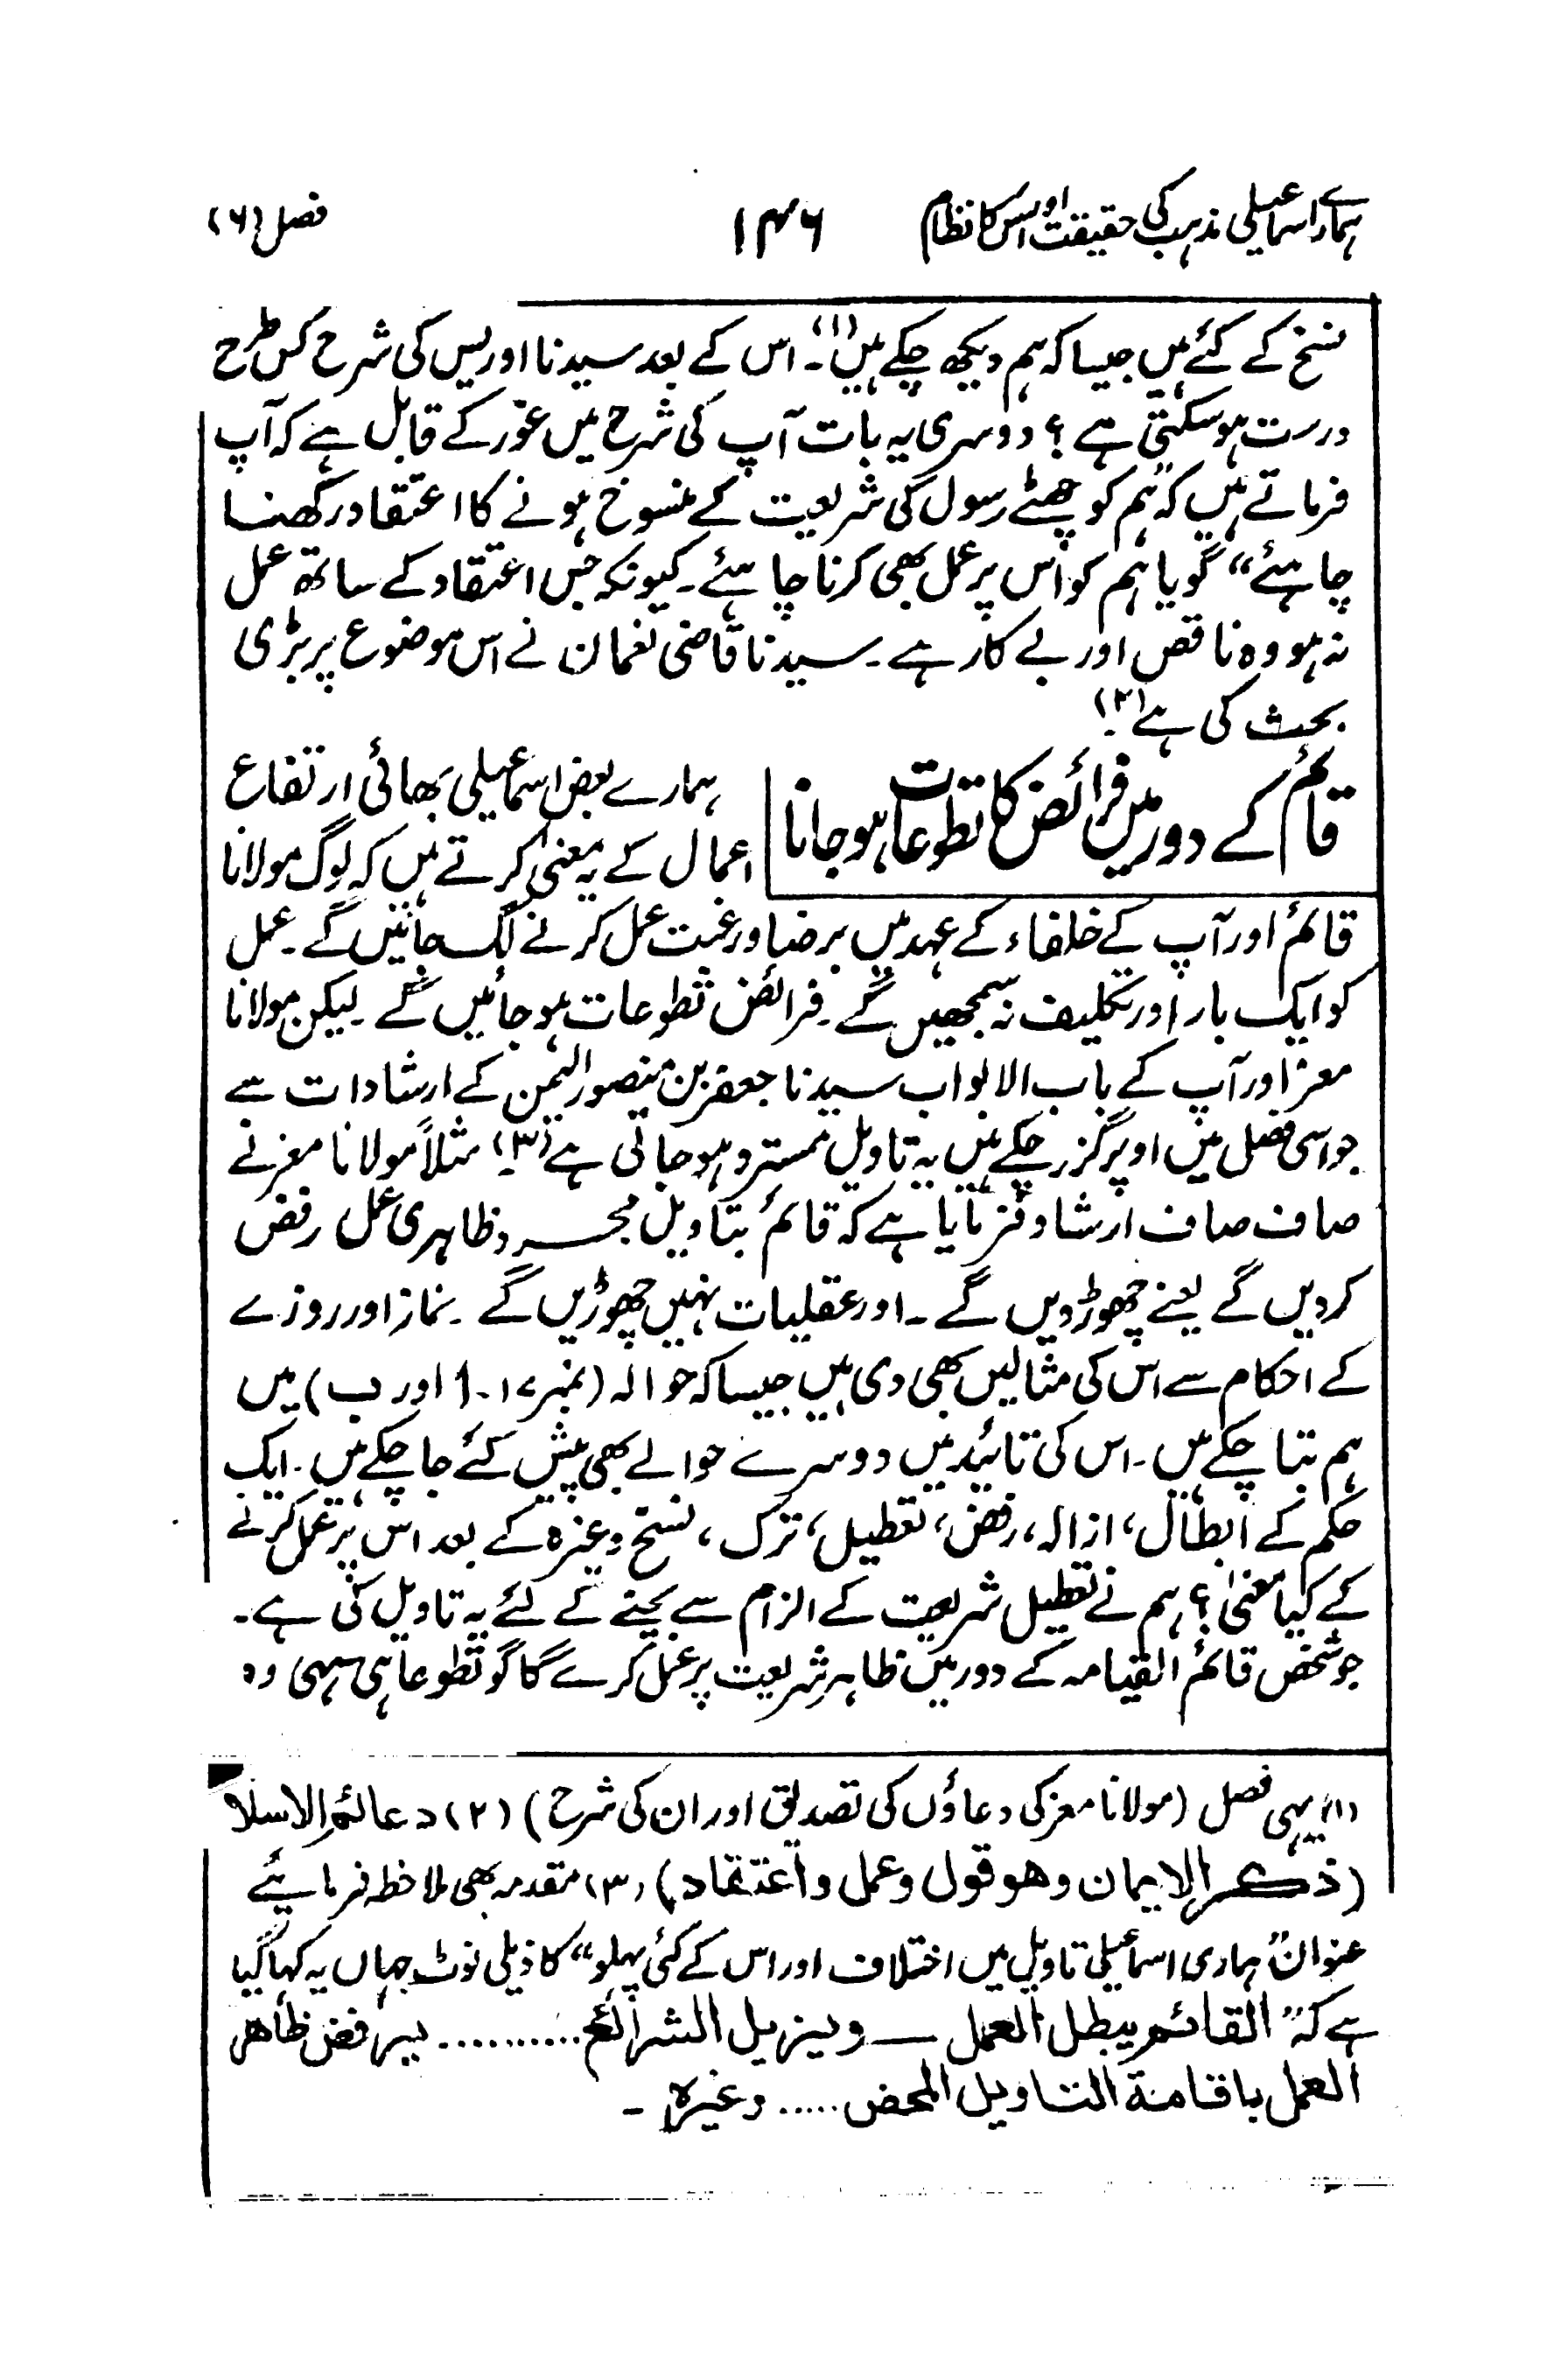 ہمارے اسماعیلی مذہب کی حقیقت اور اس کا نظام ۱۴۶ فصل (۶)
نسخ کے کئے ہیں جیسا کہ ہم دیکھ چکے ہیں (۱)۔ اس کے بعد سیدنا ادریس کی شرح کس طرح
درست ہو سکتی ہے ؟ دوسری یہ بات آپ کی شرح میں غور کے قابل ہے کہ آپ
فرماتے ہیں کہ "ہم کو چھٹے رسول کی شریعت کے منسوخ ہونے کا اعتقاد رکھنا
چاہئے" گویا ہم کو اس پر عمل بھی کرنا چاہئے۔ کیونکہ جس اعتقاد کے ساتھ عمل
نہ ہو وہ ناقص اور بے کار ہے۔ سیدنا قاضی نعمان نے اس موضوع پر بڑی
بحث کی ہے (۲)۔
قائم کے دور میں فرائض کا تطوعات ہو جانا
ہمارے بعض اسماعیلی بھائی ارتفاع
اعمال کے یہ معنی کرتے ہیں کہ لوگ مولانا
قائم اور آپ کے خلفاء کے عہد میں برضا و رغبت عمل کرنے لگ جائیں گے۔ عمل
کو ایک بار اور تکلیف نہ سمجھیں گے۔ فرائض تطوعات ہو جائیں گے۔ لیکن مولانا
معز اور آپ کے باب الابواب سیدنا جعفر بن منصور الیمن کے ارشادات سے
جو اسی فصل میں اوپر گزر چکے ہیں یہ تاویل مسترد ہو جاتی ہے (۳)۔ مثلاً مولانا معز نے
صاف صاف ارشاد فرمایا ہے کہ قائم بتاویل مجرد ظاہری عمل رفض
کر دیں گے یعنے چھوڑ دیں گے۔ اور عقلیات نہیں چھوڑیں گے۔ نماز اور روزے
کے احکام سے اس کی مثالیں بھی دی ہیں جیسا کہ حوالہ (نمبر ۱۷۔ ا اور ب) میں
ہم بتا چکے ہیں۔ اس کی تائید میں دوسرے حوالے بھی پیش کئے جا چکے ہیں۔ ایک
حکم کے ابطال، ازالہ، رفض، تعطیل، ترک، نسخ وغیرہ کے بعد اس پر عمل کرنے
کے کیا معنیٰ ؟ ہم نے تعطیل شریعت کے الزام سے بچنے کے لئے یہ تاویل کی ہے۔
جو شخص قائم القیامہ کے دور میں ظاہر شریعت پر عمل کرے گا گو تطوعا ہی سہی وہ
(۱) یہی فصل (مولانا معز کی دعاؤں کی تصدیق اور ان کی شرح) (۲) دعائم الاسلا
(ذکر الایمان وھو قول وعمل واعتقاد) (۳) مقدمہ بھی ملاحظہ فرمائیے
عنوان "ہماری اسماعیلی تاویل میں اختلاف اور اس کے کئی پہلو" کا ذیلی نوٹ جہاں یہ کہا گیا
ہے کہ "القائم یبطل العمل — ویزیل الشرائع .......... یرفض ظاھر
العمل باقامۃ التاویل المحض ..... وغیرہ۔